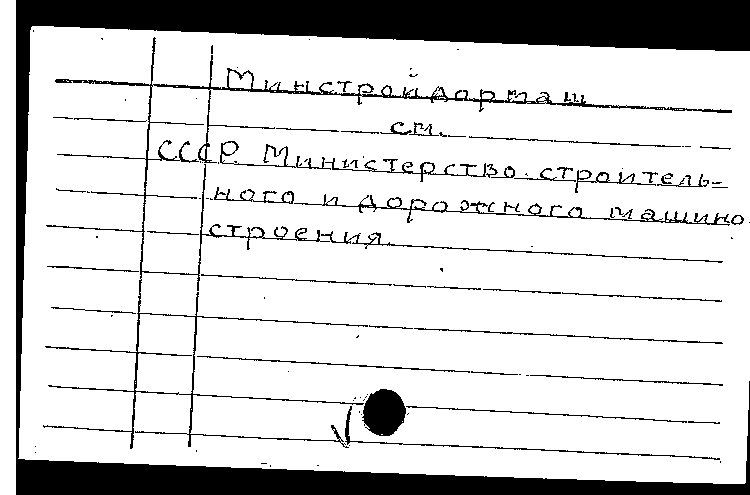 Минстройдормаш
см.
СССР. Министерство строитель-
ного и дорожного машино-
строения.